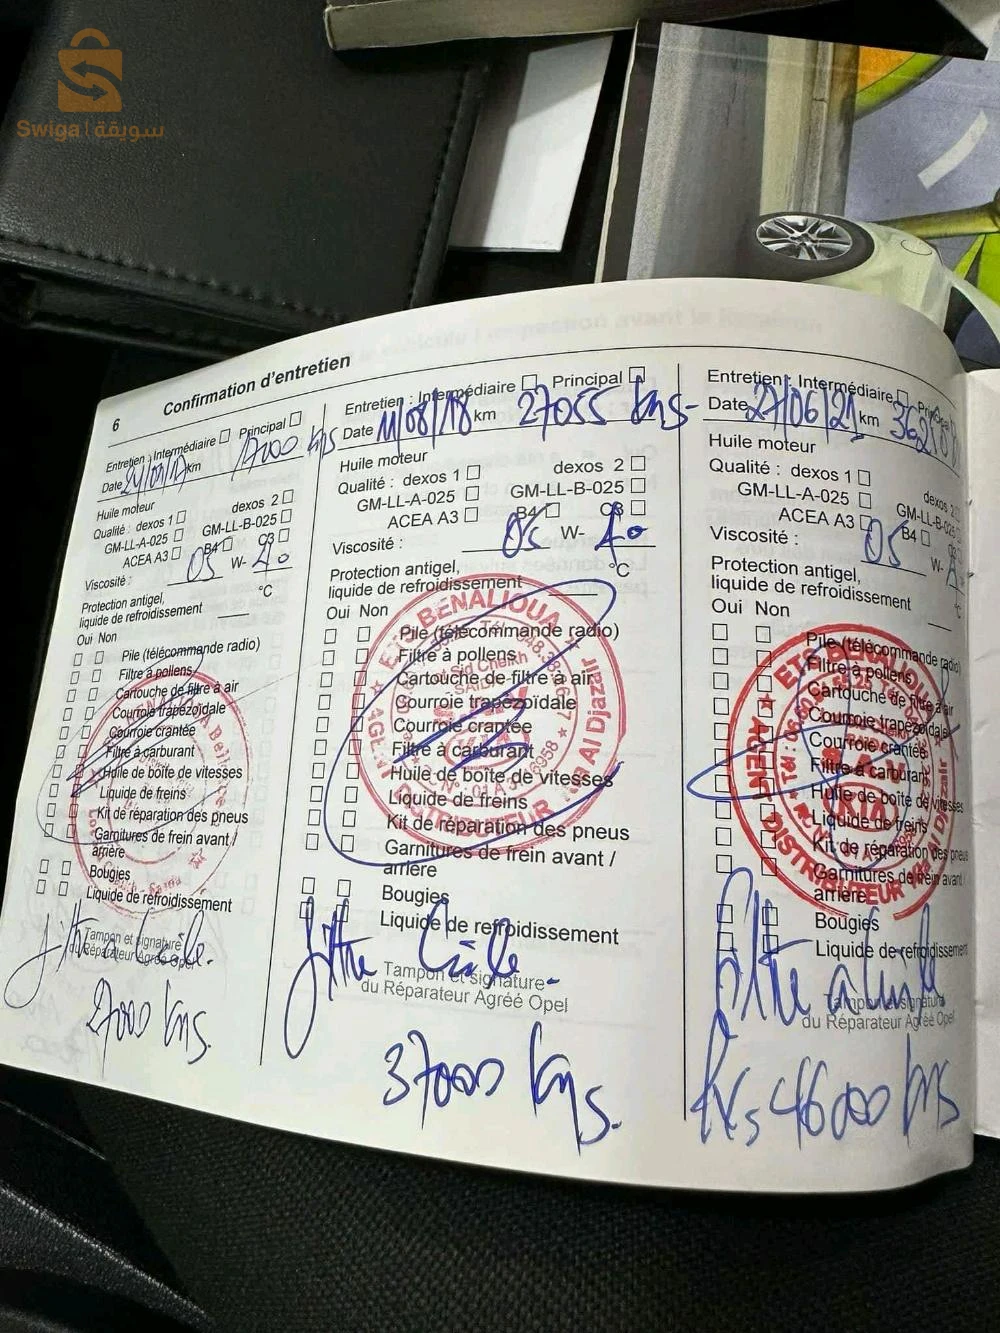 Swiga | سويقة
6 Confirmation d'entretien
Entretien : Intermédiaire Principal
Date km 17000 kms
Huile moteur
Qualité : dexos 1 dexos 2
GM-LL-A-025 GM-LL-B-025
ACEA A3 B4 C3
Viscosité : 05 W- 40
Protection antigel, °C
liquide de refroidissement
Oui Non
Pile (télécommande radio)
Filtre à pollens
Cartouche de filtre à air
Courroie trapézoïdale
Courroie crantée
Filtre à carburant
Huile de boîte de vitesses
Liquide de freins
Kit de réparation des pneus
Garnitures de frein avant /
arrière
Bougies
Liquide de refroidissement
Tampon et signature
du Réparateur Agréé Opel
27000 kms.
Entretien : Intermédiaire Principal
Date 11/08/18 km 27055 kms-
Huile moteur
Qualité : dexos 1 dexos 2
GM-LL-A-025 GM-LL-B-025
ACEA A3 B4 C3
Viscosité : 05 W- 40
Protection antigel, °C
liquide de refroidissement
Oui Non
Pile (télécommande radio)
Filtre à pollens
Cartouche de filtre à air
Courroie trapézoïdale
Courroie crantée
Filtre à carburant
Huile de boîte de vitesses
Liquide de freins
Kit de réparation des pneus
Garnitures de frein avant /
arrière
Bougies
Liquide de refroidissement
Tampon et signature
du Réparateur Agréé Opel
ETS BENALIOUA
Sid Cheikh
AGENT DISTRIBUTEUR
Al Djazair
37000 kms.
Entretien : Intermédiaire Principal
Date 27/06/21 km
Huile moteur
Qualité : dexos 1 dexos 2
GM-LL-A-025 GM-LL-B-025
ACEA A3 B4
Viscosité : 05 W-
Protection antigel, °C
liquide de refroidissement
Oui Non
Pile (télécommande radio)
Filtre à pollens
Cartouche de filtre à air
Courroie trapézoïdale
Courroie crantée
Filtre à carburant
Huile de boîte de vitesses
Liquide de freins
Kit de réparation des pneus
Garnitures de frein avant /
arrière
Bougies
Liquide de refroidissement
Tampon et signature
du Réparateur Agréé Opel
ETS BENALIOUA
AGENT DISTRIBUTEUR
Al Djazair
46000 kms